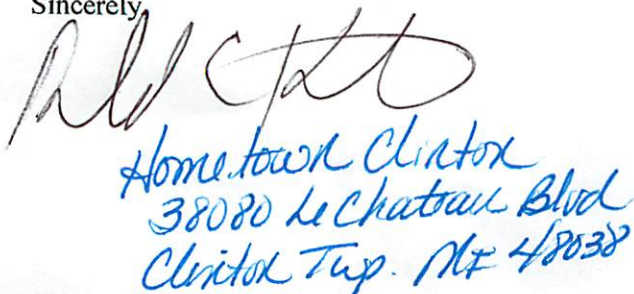 Sincerely
Hometown Clinton
38080 Le Chateau Blvd
Clinton Twp. MI 48038